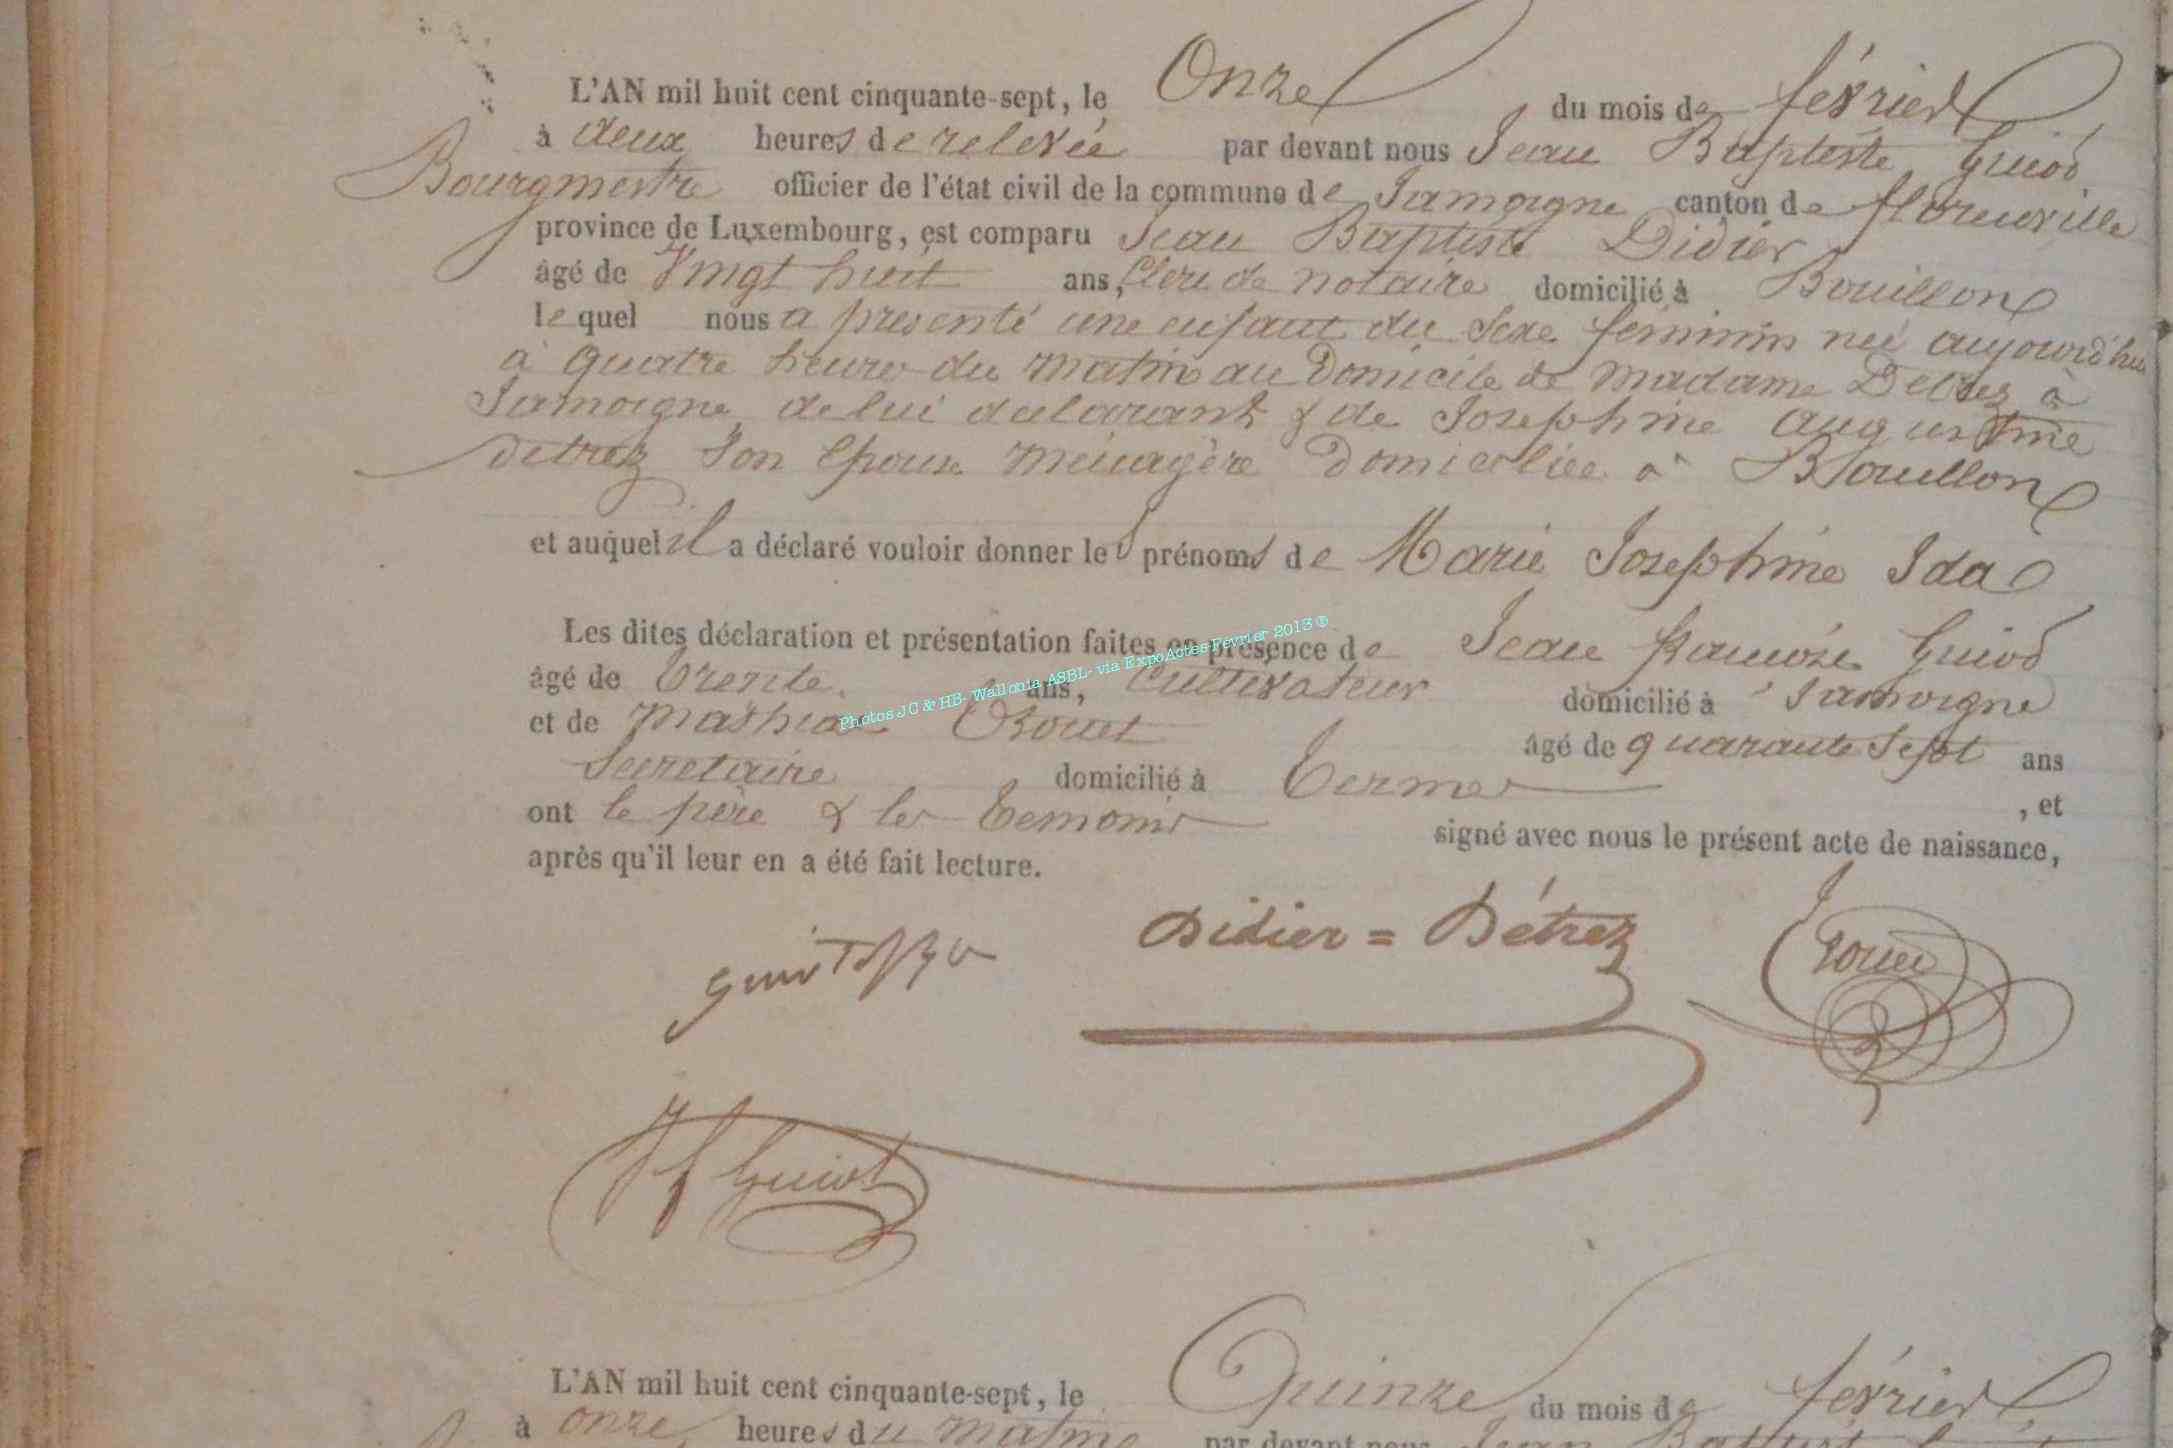 L'AN mil huit cent cinquante-sept, le Onze du mois de février
à deux heures de relevée par devant nous Jean Baptiste Guiot
Bourgmestre officier de l'état civil de la commune de Jamoigne canton de florenville
province de Luxembourg, est comparu Jean Baptiste Didier
âgé de Vingt huit ans, Clerc de notaire domicilié à Bouillon
lequel nous a présenté une enfant du sexe féminin née aujourd'hui
à quatre heures du matin au Domicile de Madame Detrez à
Jamoigne de lui déclarant & de Josephine augustine
detrez son épouse ménagère Domiciliée à Bouillon
et auquel il a déclaré vouloir donner les prénoms de Marie Josephine Ida
Les dites déclaration et présentation faites en présence de Jean françois Guiot
âgé de trente ans, Cultivateur domicilié à Jamoigne
et de Mathias Rouet âgé de quarante sept ans
Secretaire domicilié à termes , et
ont le père & les temoins signé avec nous le présent acte de naissance,
après qu'il leur en a été fait lecture.
Photos JC & HB- Wallonia ASBL- via ExpoActes-Février 2013 ®
Didier = Détrez
Rouet
Guiot
L'AN mil huit cent cinquante-sept, le Quinze du mois de février
à onze heures du matin par devant nous Jean Baptist